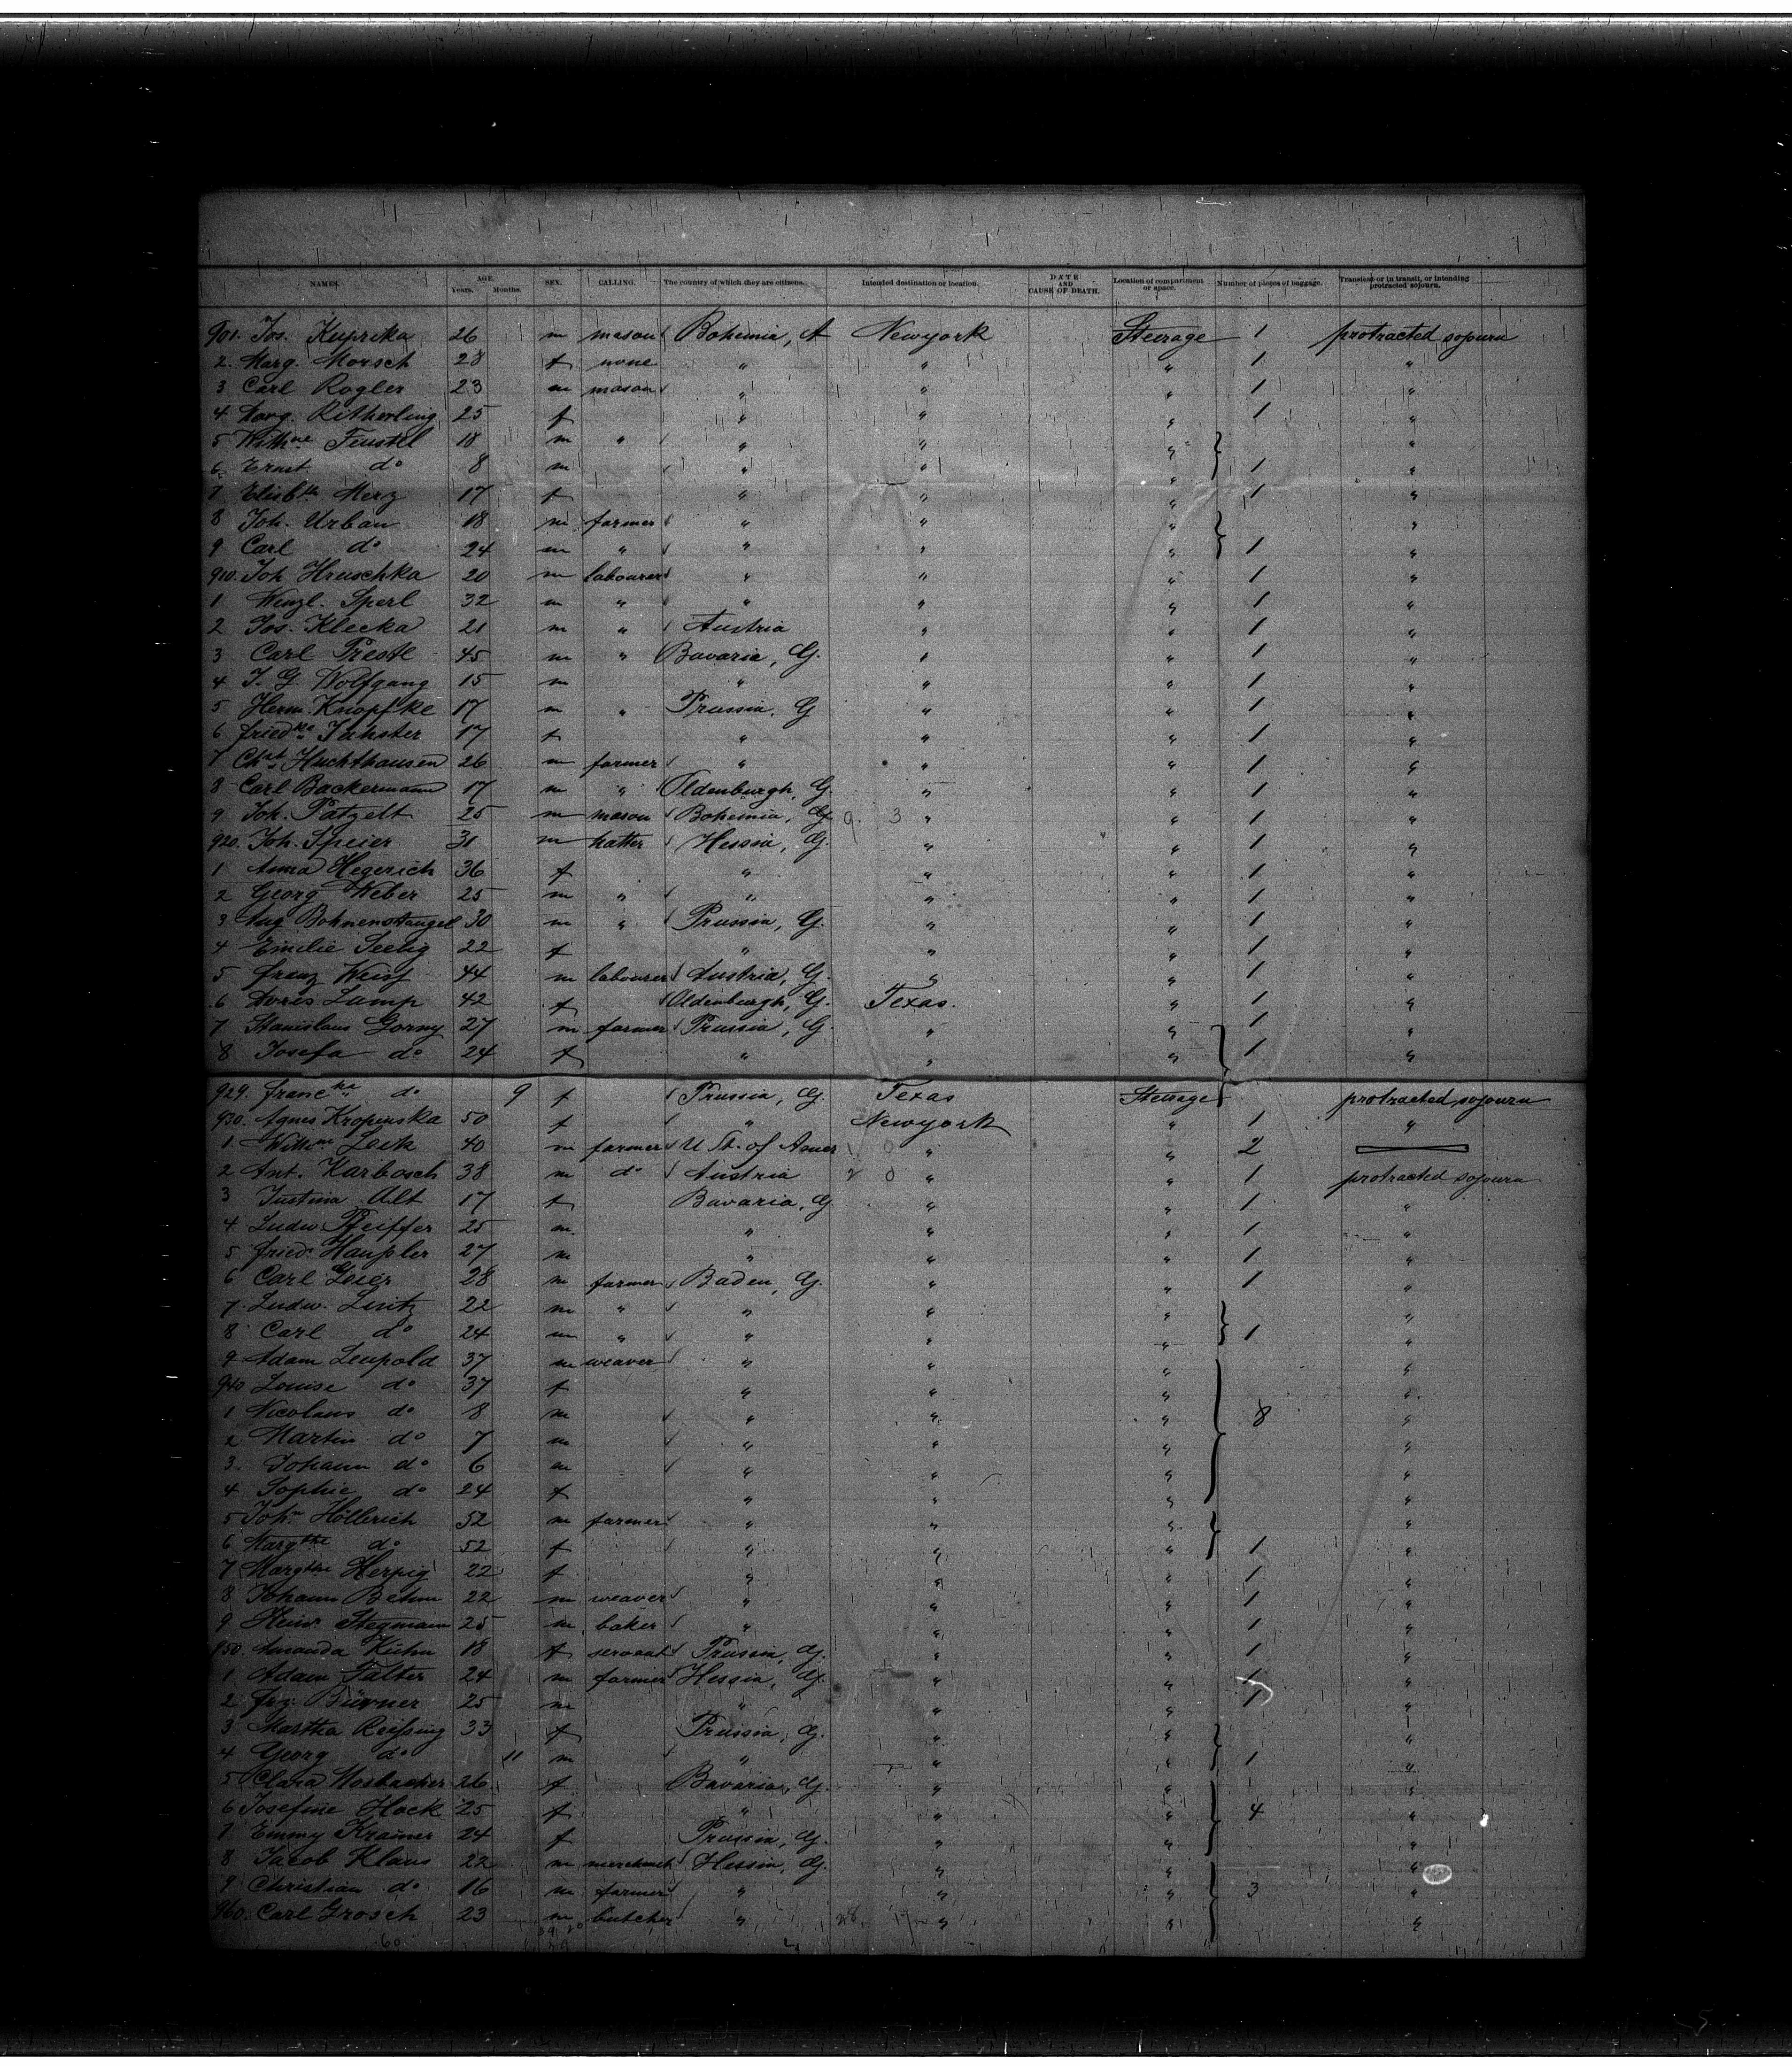 NAMES. AGE. Years. Months. SEX. CALLING. The country of which they are citizens. Intended destination or location. DATE AND CAUSE OF DEATH. Location of compartment or space. Number of pieces of baggage. Transient or in transit, or intending protracted sojourn.
901. Jos. Kuprika 26 m mason Bohemia, A Newyork Steerage 1 protracted sojourn
2. Marg. Morsch 28 f none " " " 1 "
3 Carl Rogler 23 m mason " " " 1 "
4 Marg. Ritherling 25 f " " " 1 "
5 Feustel 18 m " " " " "
6 Ernst do 8 m " " " 1 "
7 Elisbth Merz 17 f " " " 1 "
8 Joh. Urban 18 m farmer " " " "
9 Carl do 24 m " " " " 1 "
910. Joh Hruschka 20 m labourer " " " 1 "
1 Wenzl. Sperl 32 m " " " " 1 "
2 Jos. Klecka 21 m " Austria " " 1 "
3 Carl Prestl 45 m " Bavaria, G. " " 1 "
4 J. G. Wolfgang 15 m " " " 1 "
5 Herm. Knopfke 17 m " Prussia, G " " 1 "
6 Friedke 17 f " " " 1 "
7 Huchthausen 26 m farmer " " " 1 "
8 Carl Backermann 17 m " Oldenburgh, G. " " 1 "
9 Joh. Patzelt 25 m mason Bohemia, G 9. 3 " " 1 "
920. Joh. Speier 31 m hatter Hessia, G. " " 1 "
1 Anna Hegerich 36 f " " " 1 "
2 Georg Weber 25 m " " " " 1 "
3 Aug Bohnenstangel 30 m " Prussia, G. " " 1 "
4 Emilie Seelig 22 f " " " 1 "
5 Franz Weiss 44 m labourer Austria, G. " " 1 "
6 Doris Lump 42 f Oldenburgh, G. Texas. " 1 "
7 Stanislaus Gorny 27 m farmer Prussia, G. " " 1 "
8 Josefa do 24 f " " " 1 "
929. Francka do 9 f Prussia, G. Texas Steerage protracted sojourn
930. Agnes Kropinska 50 f " Newyork " 1 "
1 Wilhm Leik 40 m farmer U St. of Amer 1 0 " " 2
2 Ant. Karbosch 38 m do Austria 2 0 " " 1 protracted sojourn
3 Justina Alt 17 f Bavaria, G " " 1 "
4. Ludw. Pfeiffer 25 m " " " 1 "
5. Fried. Haussler 27 m " " " 1 "
6 Carl Geier 28 m farmer Baden, G. " " 1 "
7. Ludw. 22 m " " " " "
8 Carl do 24 m " " " " 1 "
9 Adam Leupold 37 m weaver " " " "
940 Louise do 37 f " " " "
1 Nicolaus do 8 m " " " 8 "
2 Martin do 7 m " " " "
3. Johann do 6 m " " " "
4 Sophie do 24 f " " " "
5 Joh. Höllerich 52 m farmer " " " "
6 Margthe do 52 f " " " 1 "
7 Margthe Herpig 22 f " " " 1 "
8 Johann Behm 22 m weaver " " " 1 "
9 Heinr. Stegmann 25 m baker " " " 1 "
950. Amanda Kühn 18 f servant Prussia, G. " " 1 "
1 Adam 24 m farmer Hessia, G. " " 1 "
2 Frz. 25 m " " " 1 "
3 Martha Reissing 33 f Prussia, G. " " "
4 Georg do 11 m " " " 1 "
5 Clara Mosbacher 26 f Bavaria, G. " " "
6 Josefine Hock 25 f " " " 4 "
7 Emmy Kramer 24 f Prussia, G. " " "
8 Jacob Klaus 22 m merchant Hessia, G. " " "
9 Christian do 16 m farmer " " " 3 "
960. Carl Grosch 23 m butcher " 28. 17 " " "
60 39 20